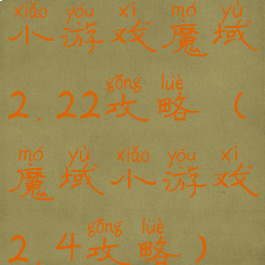 xiǎo yóu xì mó yù
小游戏魔域
gōng lüè
2.22攻略（
mó yù xiǎo yóu xì
魔域小游戏
gōng lüè
2.4攻略）